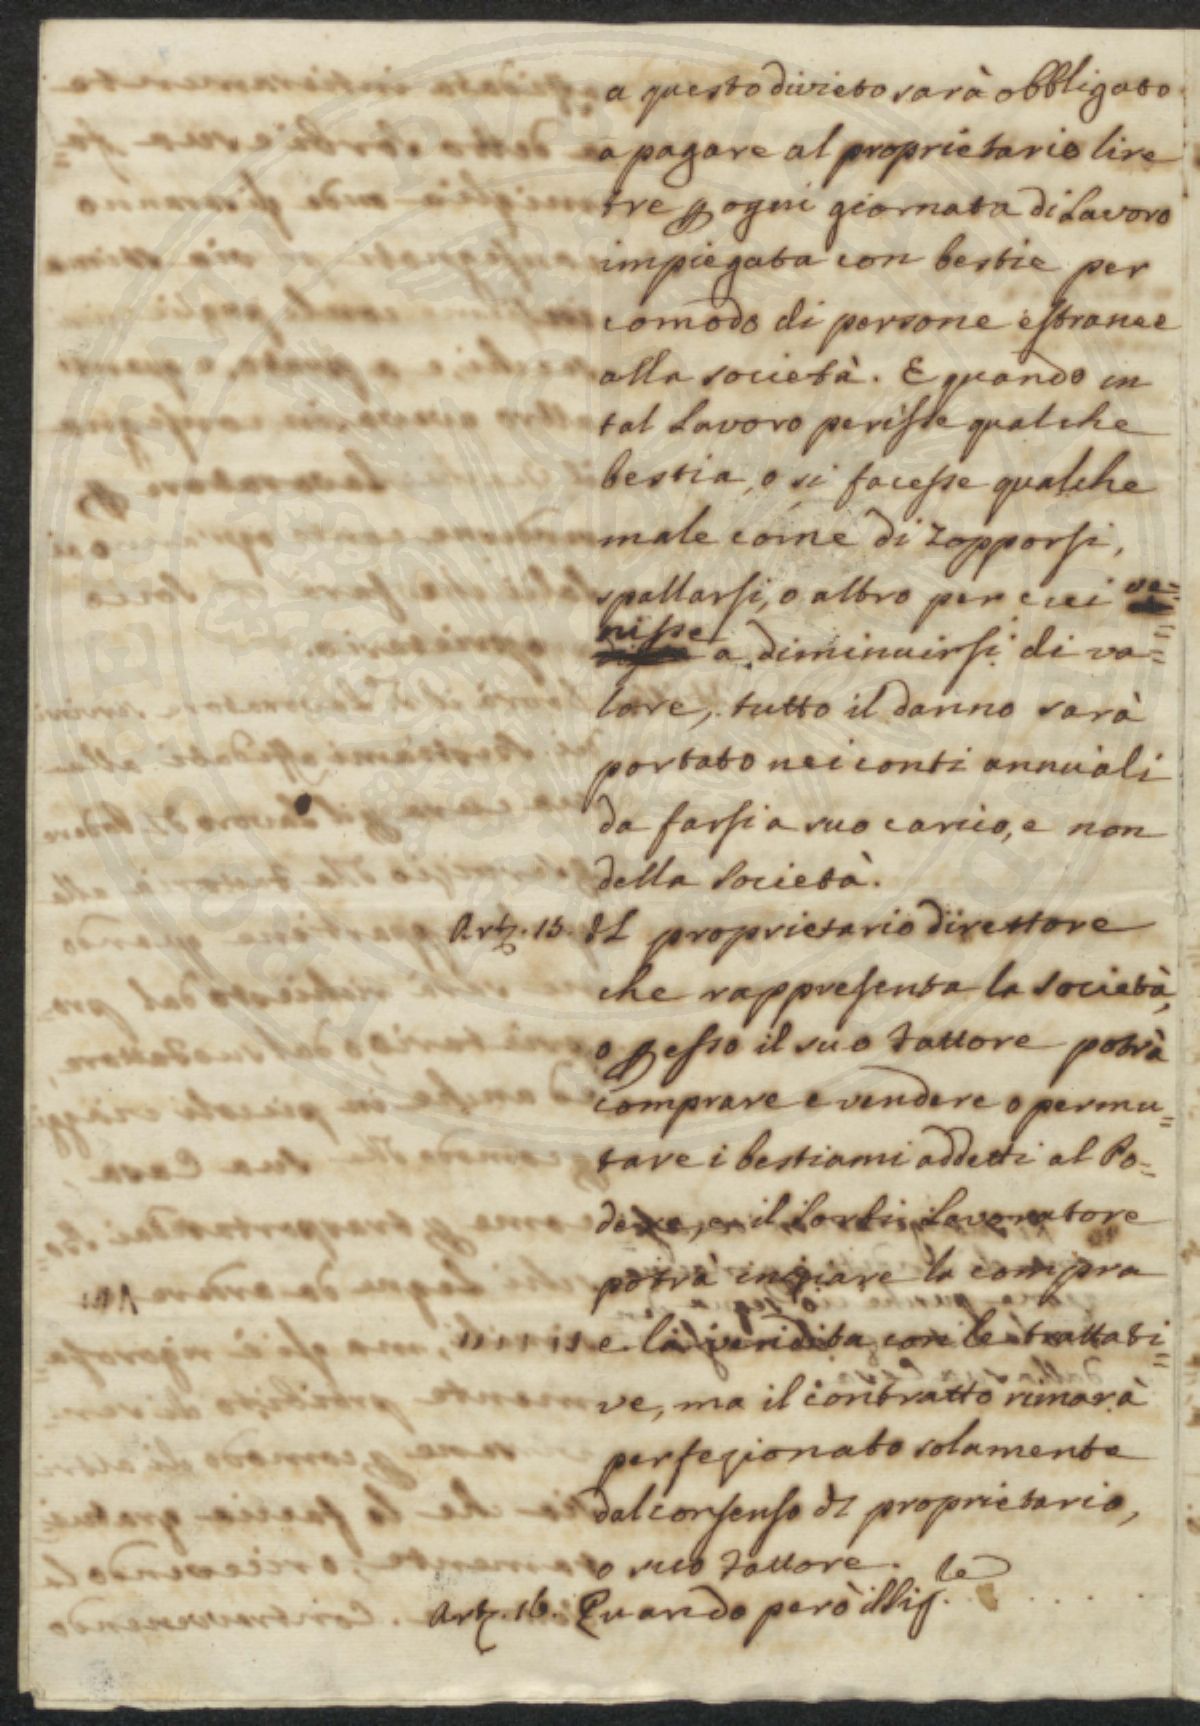 a questo divieto sarà obbligato
a pagare al proprietario lire
tre p ogni giornata di Lavoro
impiegata con bestie per
comodo di persone estranee
alla società. E quando in
tal Lavoro perisse qualche
bestia, o si facesse qualche
male come di Zopporsi,
spallarsi, o altro per cui ve=
nisse a diminuirsi di va=
lore, tutto il danno sarà
portato nei conti annuali
da farsi a suo carico, e non
della Società.
Art. 15. Il proprietario direttore
che rappresenta la Società,
o p esso il suo Fattore potrà
comprare e vendere o permu=
tare i bestiami addetti al Po=
dere, e il Lavoratore
potrà iniziare la compra
e la vendita con le trattati=
ve, ma il contratto rimarà
perfezionato solamente
dal consenso dl proprietario,
o suo Fattore.
Art. 16. Quando però il